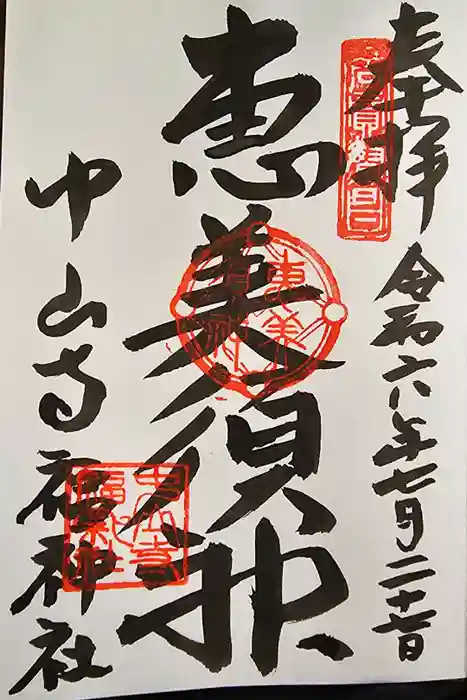 奉拝
令和六年七月二十日
恵美須神
恵美須神
中山寺福神社